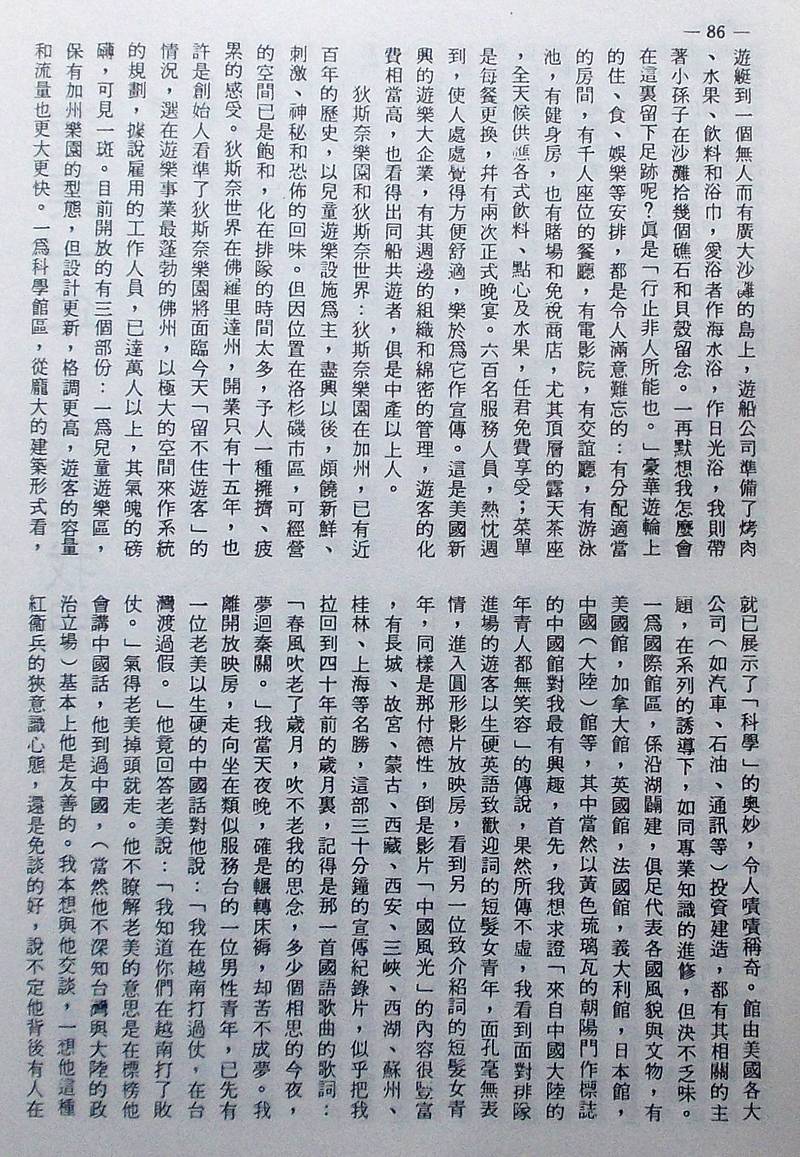 — 86 —
遊艇到一個無人而有廣大沙灘的島上，遊船公司準備了烤肉
、水果、飲料和浴巾，愛浴者作海水浴，作日光浴，我則帶
著小孫子在沙灘拾幾個礁石和貝殼留念。一再默想我怎麼會
在這裏留下足跡呢？眞是「行止非人所能也。」豪華遊輪上
的住、食、娛樂等安排，都是令人滿意難忘的：有分配適當
的房間，有千人座位的餐廳，有電影院，有交誼廳，有游泳
池，有健身房，也有賭場和免稅商店，尤其頂層的露天茶座
，全天候供應各式飲料、點心及水果，任君免費享受；菜單
是每餐更換，幷有兩次正式晚宴。六百名服務人員，熱忱週
到，使人處處覺得方便舒適，樂於爲它作宣傳。這是美國新
興的遊樂大企業，有其週邊的組織和綿密的管理，遊客的化
費相當高，也看得出同船共遊者，俱是中產以上人。
狄斯奈樂園和狄斯奈世界：狄斯奈樂園在加州，已有近
百年的歷史，以兒童遊樂設施爲主，盡興以後，頗饒新鮮、
刺激、神秘和恐佈的回味。但因位置在洛杉磯市區，可經營
的空間已是飽和，化在排隊的時間太多，予人一種擁擠、疲
累的感受。狄斯奈世界在佛羅里達州，開業只有十五年，也
許是創始人看準了狄斯奈樂園將面臨今天「留不住遊客」的
情況，選在遊樂事業最蓬勃的佛州，以極大的空間來作系統
的規劃，據說雇用的工作人員，已達萬人以上，其氣魄的磅
礴，可見一斑。目前開放的有三個部份：一爲兒童遊樂區，
保有加州樂園的型態，但設計更新，格調更高，遊客的容量
和流量也更大更快。一爲科學館區，從龐大的建築形式看，
就已展示了「科學」的奧妙，令人嘖嘖稱奇。館由美國各大
公司（如汽車、石油、通訊等）投資建造，都有其相關的主
題，在系列的誘導下，如同專業知識的進修，但決不乏味。
一爲國際館區，係沿湖闢建，俱足代表各國風貌與文物，有
美國館，加拿大館，英國館，法國館，義大利館，日本館，
中國（大陸）館等，其中當然以黃色琉璃瓦的朝陽門作標誌
的中國館對我最有興趣，首先，我想求證「來自中國大陸的
年青人都無笑容」的傳說，果然所傳不虛，我看到面對排隊
進場的遊客以生硬英語致歡迎詞的短髮女青年，面孔毫無表
情，進入圓形影片放映房，看到另一位致介紹詞的短髮女青
年，同樣是那付德性，倒是影片「中國風光」的內容很豐富
，有長城、故宮、蒙古、西藏、西安、三峽、西湖、蘇州、
桂林、上海等名勝，這部三十分鐘的宣傳紀錄片，似乎把我
拉回到四十年前的歲月裏，記得是那一首國語歌曲的歌詞：
「春風吹老了歲月，吹不老我的思念，多少個相思的今夜，
夢迴秦關。」我當天夜晚，確是輾轉床褥，却苦不成夢。我
離開放映房，走向坐在類似服務台的一位男性青年，已先有
一位老美以生硬的中國話對他說：「我在越南打過仗，在台
灣渡過假。」他竟回答老美說：「我知道你們在越南打了敗
仗。」氣得老美掉頭就走。他不瞭解老美的意思是在標榜他
會講中國話，他到過中國，（當然他不深知台灣與大陸的政
治立場）基本上他是友善的。我本想與他交談，一想他這種
紅衞兵的狹意識心態，還是免談的好，說不定他背後有人在